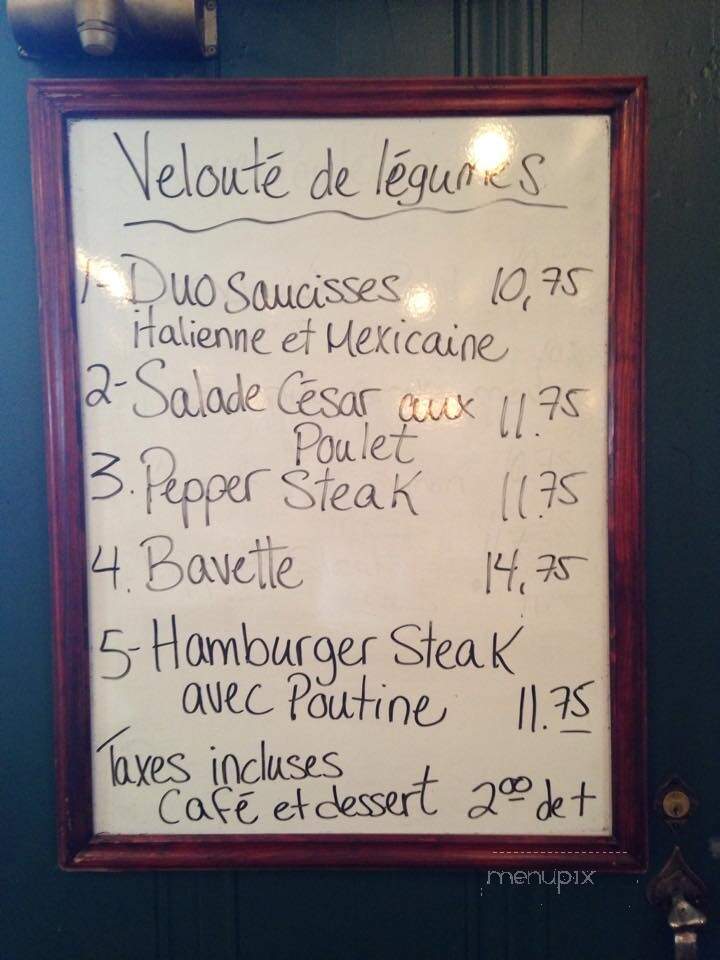 Velouté de légumes
1- Duo Saucisses 10,75
italienne et Mexicaine
2- Salade César aux 11.75
Poulet
3. Pepper Steak 11.75
4. Bavette 14,75
5- Hamburger Steak
avec Poutine 11.75
Taxes incluses
Café et dessert 2⁰⁰ de +
menupix